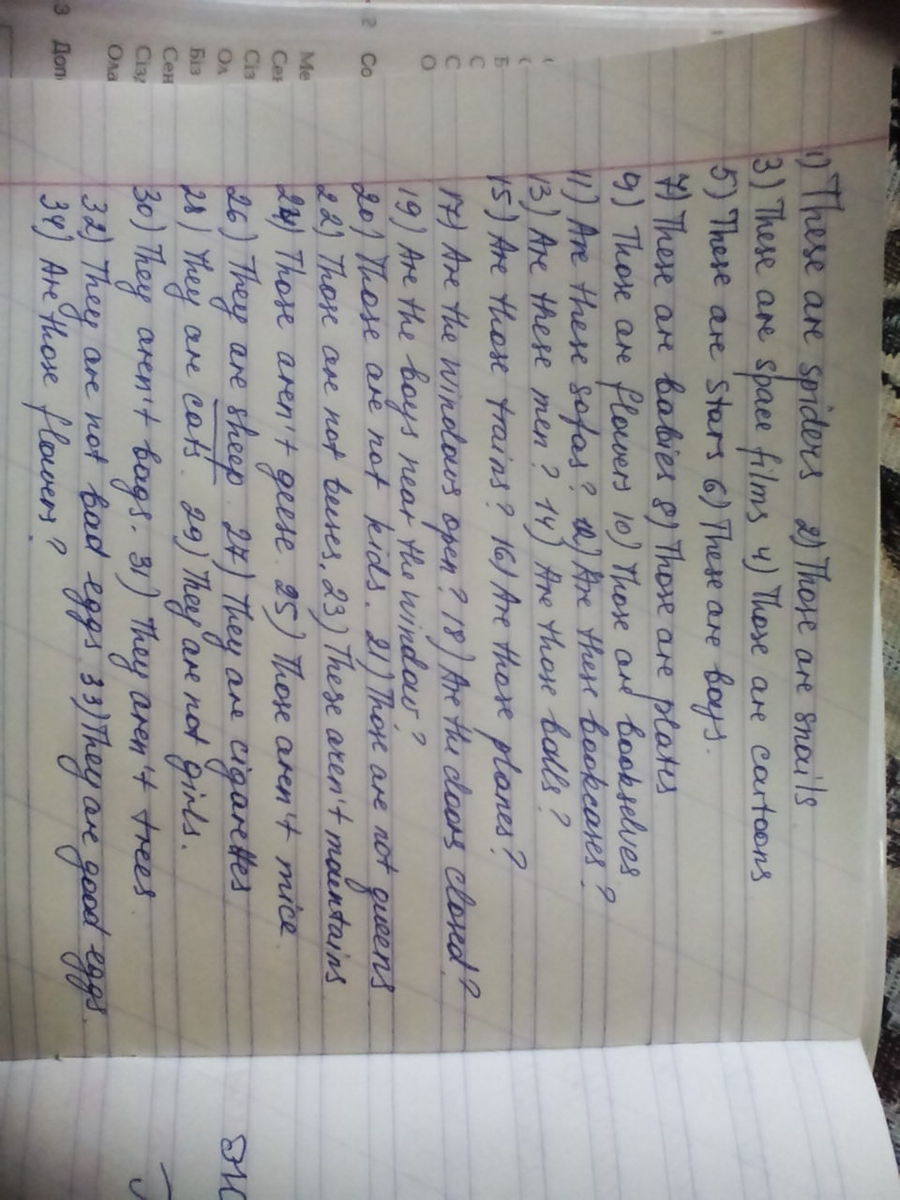 1) These are spiders 2) Those are snails
3) These are space films 4) Those are cartoons
5) These are stars 6) These are boys.
7) These are babies 8) Those are plates
9) Those are flowers 10) Those are bookselves
11) Are these sofas? 12) Are these bookcases?
13) Are these men? 14) Are those balls?
15) Are those trains? 16) Are those planes?
17) Are the windows open? 18) Are the doors closed?
19) Are the boys near the window?
20) Those are not kids. 21) Those are not queens
22) Those are not buses. 23) These aren't mountains
24) Those aren't geese. 25) Those aren't mice
26) They are sheep. 27) They are cigarettes
28) They are cats. 29) They are not girls.
30) They aren't bags. 31) They aren't trees
32) They are not bad eggs. 33) They are good eggs.
34) Are those flowers?
3 Доп
Ола
Сіз
Сен
Біз
Ол
Сіз
Сен
Ме
2 Со
О
С
С
Б